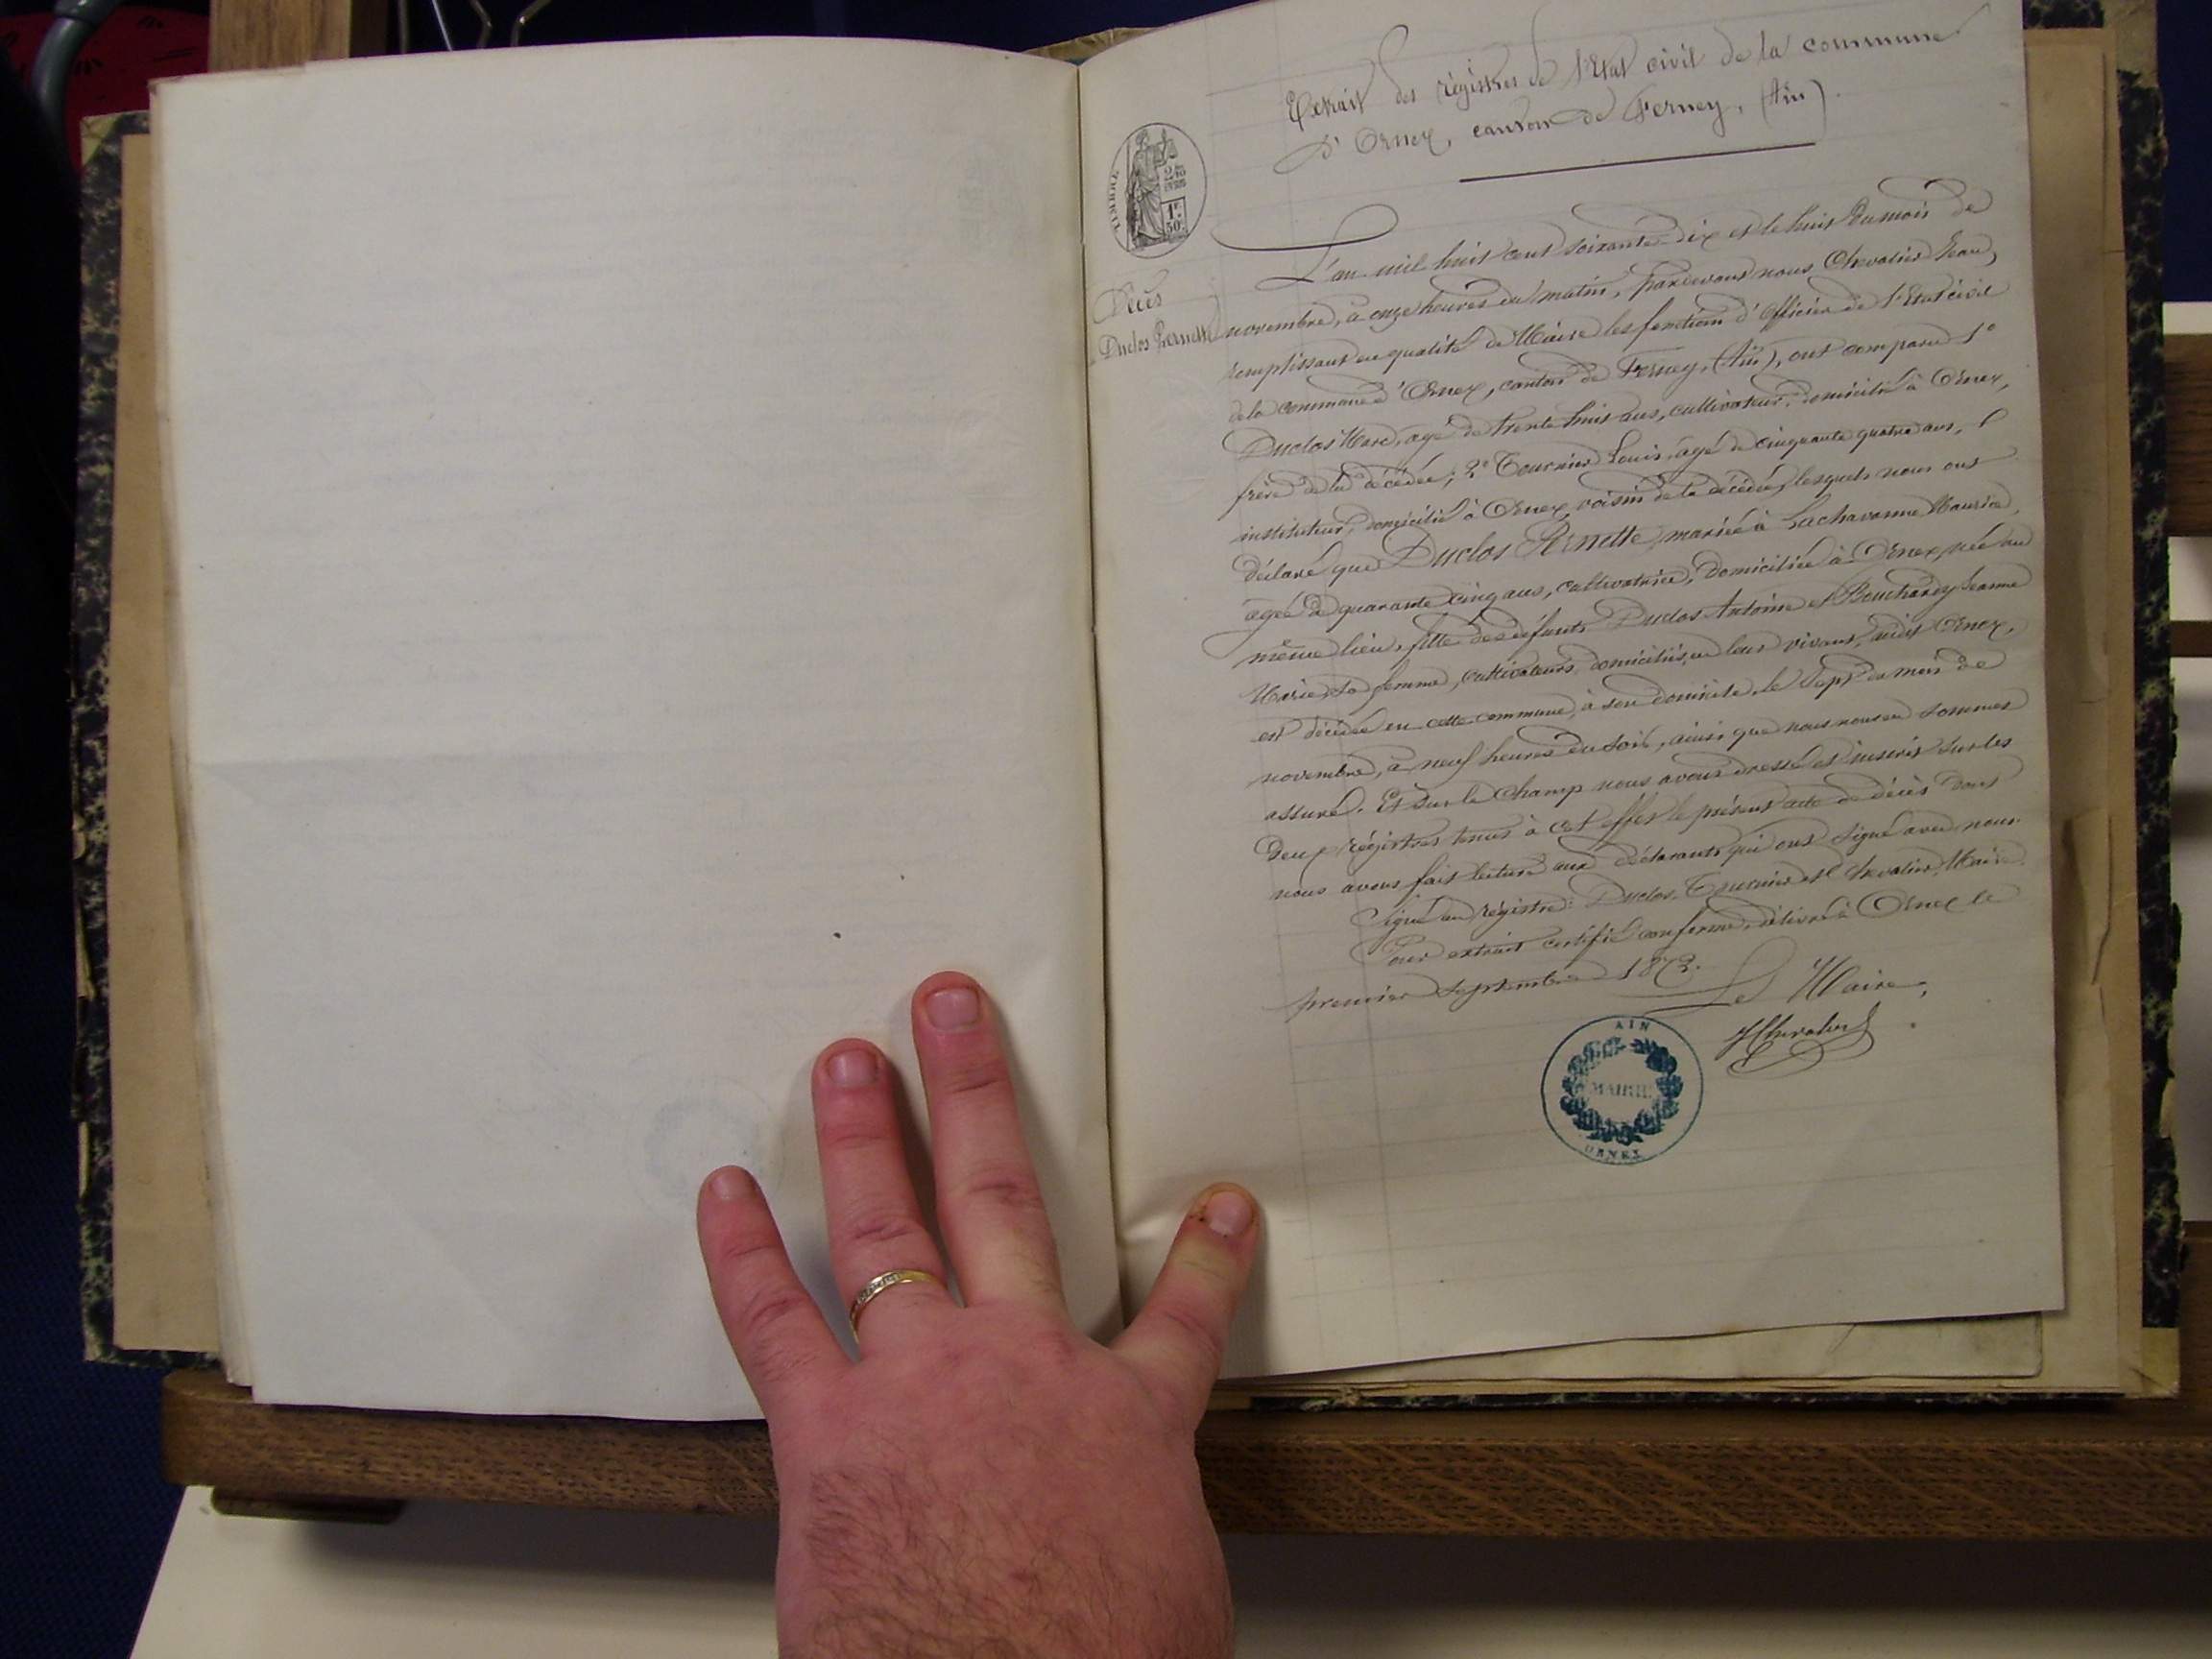 Extrait des régistres de l'Etat civil de la commune
d'Ornex, canton de Ferney, (Ain).
TIMBRE
1F
50c
Décès
Duclos Pernette
L'an mil huit cent soixante-dix et le huit du mois de
novembre, à onze heures du matin, pardevant nous Chevalier Jean,
remplissant en qualité de Maire les fonctions d'Officier de l'Etat civil
de la commune d'Ornex, canton de Ferney, (Ain), ont comparu 1°
Duclos Marc, agé de trente huit ans, cultivateur, domicilié à Ornex,
frère de la décédée; 2° Tournier Louis, agé de cinquante quatre ans,
instituteur, domicilié à Ornex, voisin de la décédée, lesquels nous ont
déclaré que Duclos Pernette, mariée à Lachavanne Maurice,
agée de quarante cinq ans, cultivatrice, domiciliée à Ornex, née au
même lieu, fille des défunts Duclos Antoine et Bouchardy Jeanne
Marie, sa femme, cultivateurs, domiciliés, en leur vivant, audit Ornex,
est décédée en cette commune, à son domicile, le sept du mois de
novembre, à neuf heures du soir, ainsi que nous nous en sommes
assuré. Et sur le champ nous avons dressé et inscrit sur les
deux régistres tenus à cet effet le présent acte de décès dont
nous avons fait lecture aux déclarants qui ont signé avec nous.
Signé au régistre: Duclos, Tournier et Chevalier, Maire.
Pour extrait certifié conforme, délivré à Ornex le
premier Septembre 1872.
Le Maire,
JChevalier
AIN
MAIRIE
ORNEX